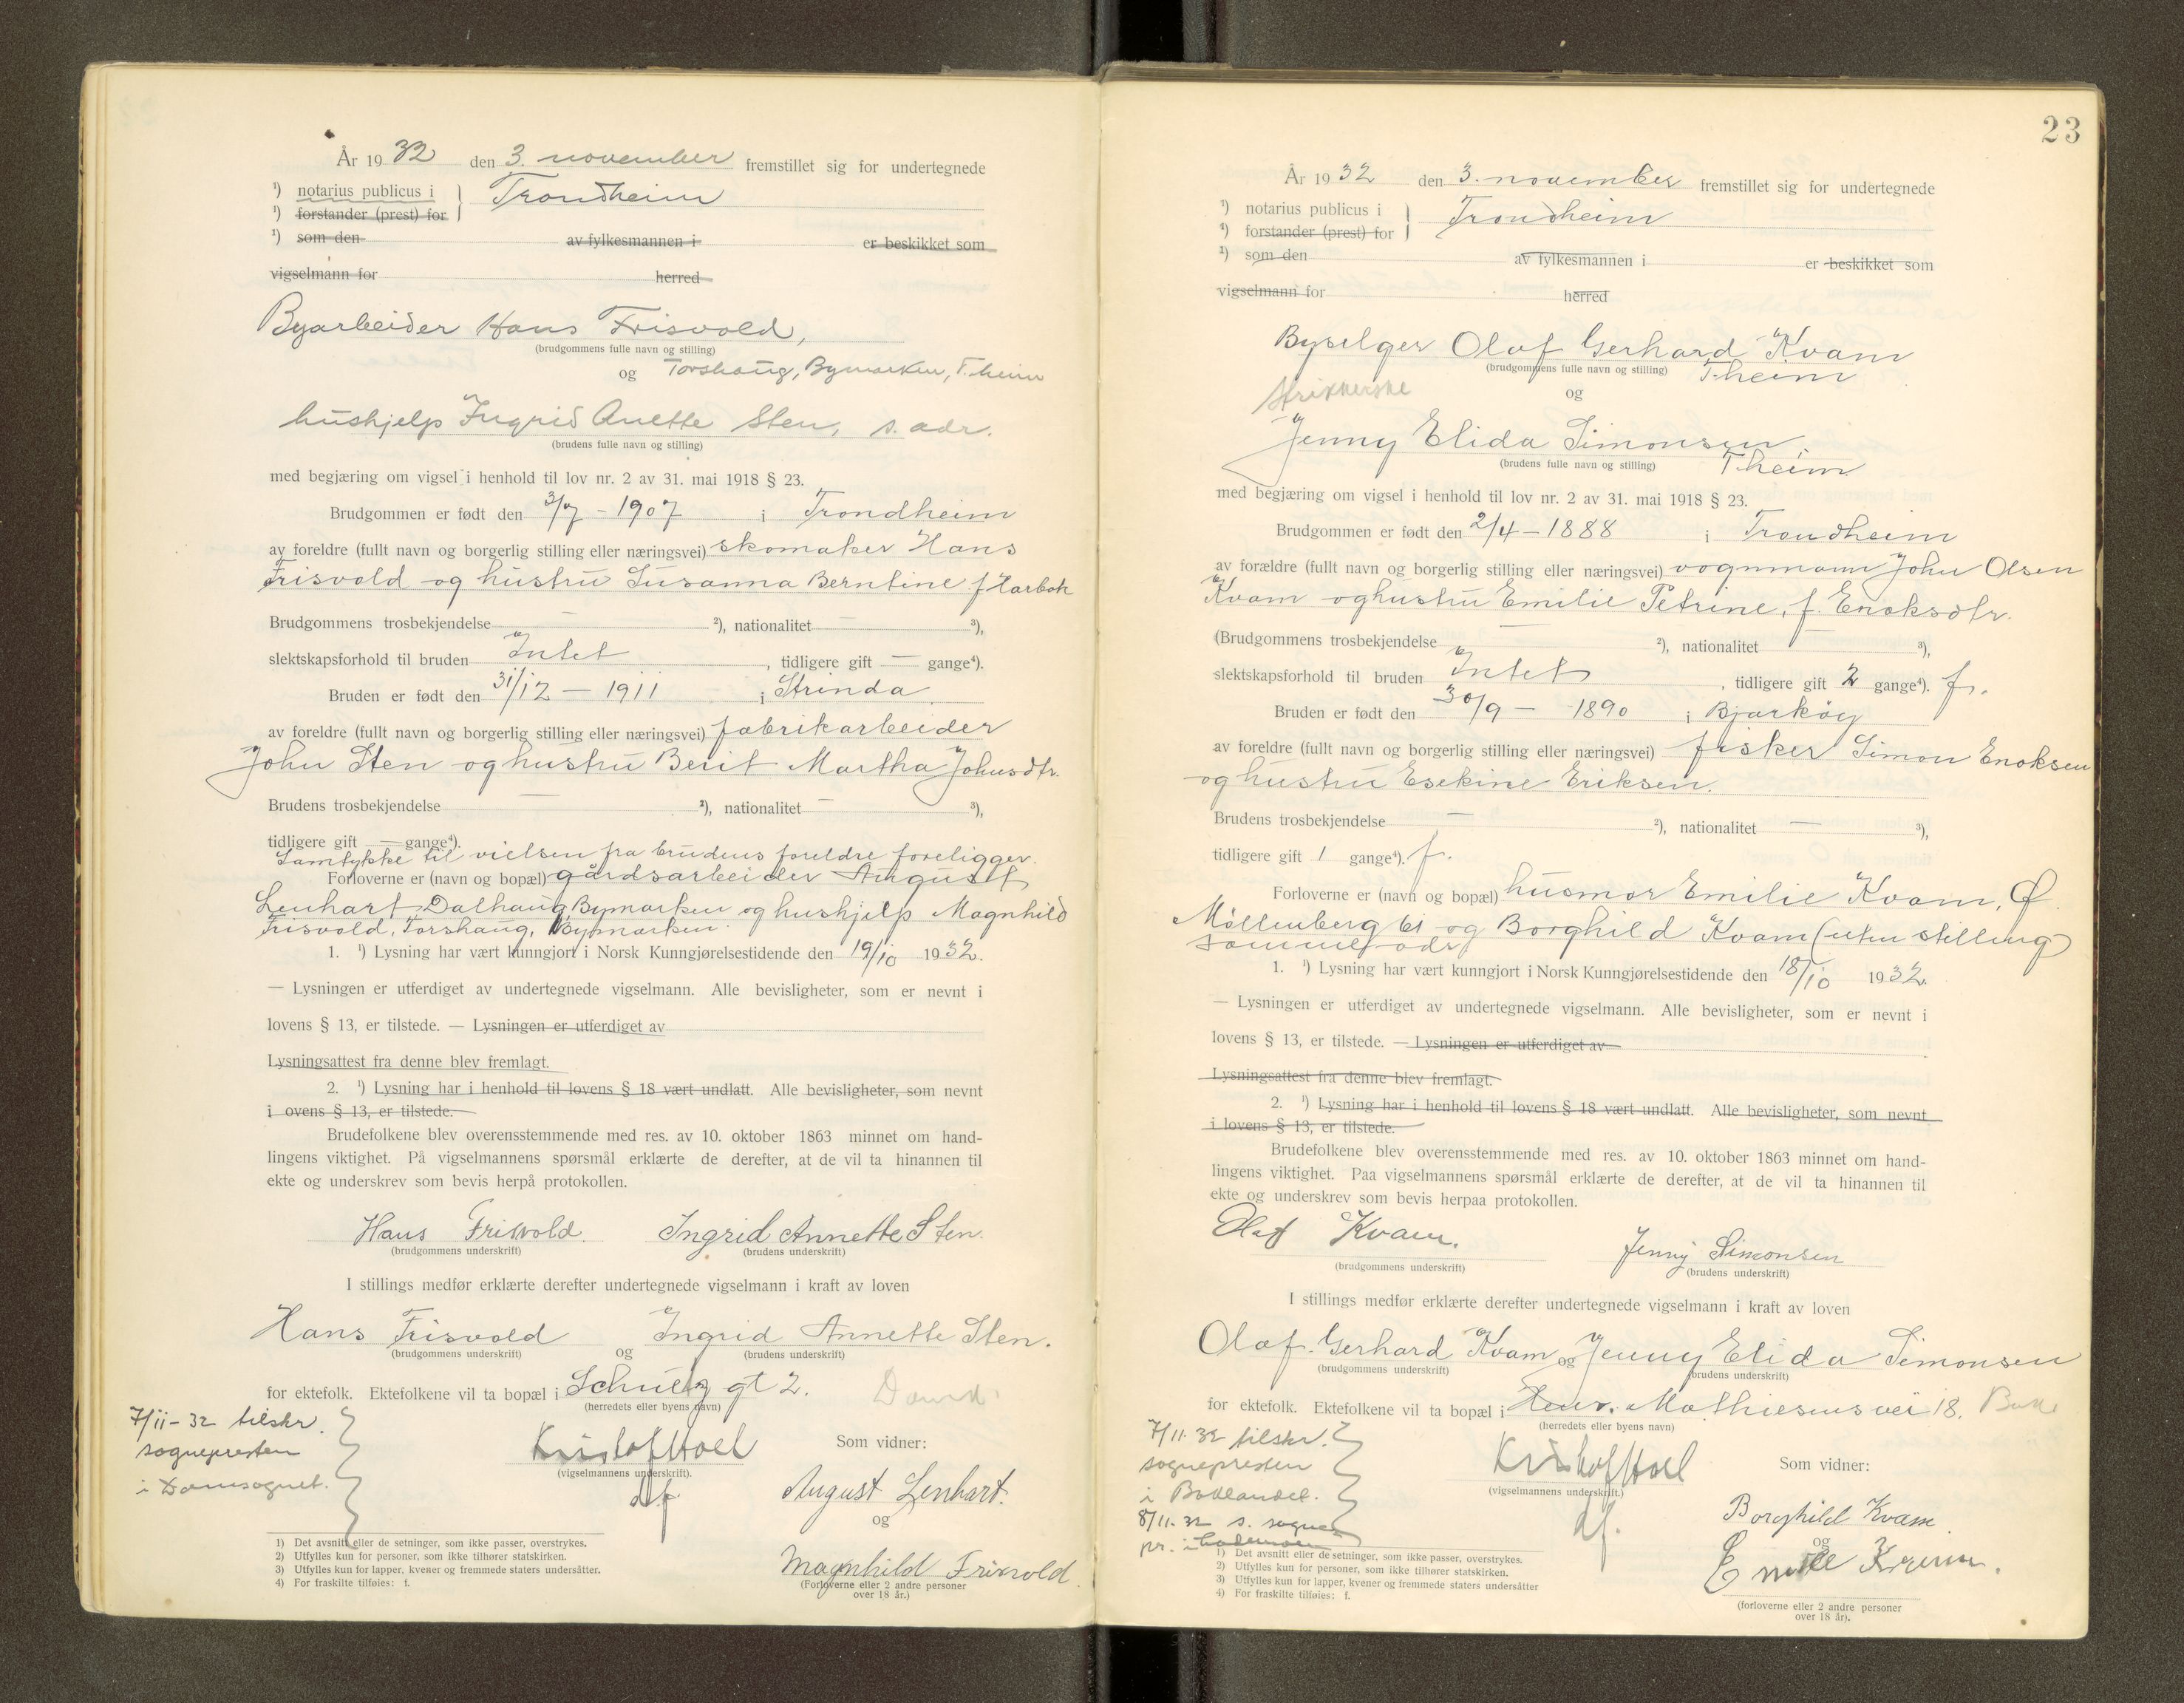 År 1932 den 3. november fremstillet sig for undertegnede
¹) notarius publicus i } Trondheim
¹) forstander (prest) for
¹) som den av fylkesmannen i er beskikket som
vigselmann for herred
Byarbeider Hans Frisvold,
(brudgommens fulle navn og stilling)
og Torshaug, Bymarken, T.heim
hushjelp Ingrid Anette Sten, s. adr.
(brudens fulle navn og stilling)
med begjæring om vigsel i henhold til lov nr. 2 av 31. mai 1918 § 23.
Brudgommen er født den 3/7 - 1907 i Trondheim
av foreldre (fullt navn og borgerlig stilling eller næringsvei) skomaker Hans
Frisvold og hustru Susanna Berntine f. Harbak
Brudgommens trosbekjendelse — ²), nationalitet — ³),
slektskapsforhold til bruden Intet, tidligere gift — gange⁴).
Bruden er født den 31/12 — 1911 i Strinda
av foreldre (fullt navn og borgerlig stilling eller næringsvei) fabrikarbeider
John Sten og hustru Berit Martha Johnsdtr.
Brudens trosbekjendelse — ²), nationalitet — ³),
tidligere gift — gange⁴).
Samtykke til vielsen fra brudens foreldre foreligger.
Forloverne er (navn og bopæl) gårdsarbeider August
Lenhart Dalhaug, Bymarken og hushjelp Magnhild
Frisvold, Torshaug, Bymarken.
1. ¹) Lysning har vært kunngjort i Norsk Kunngjørelsestidende den 19/10 1932.
— Lysningen er utferdiget av undertegnede vigselmann. Alle bevisligheter, som er nevnt i
lovens § 13, er tilstede. — Lysningen er utferdiget av
Lysningsattest fra denne blev fremlagt.
2. ¹) Lysning har i henhold til lovens § 18 vært undlatt. Alle bevisligheter, som nevnt
i ovens § 13, er tilstede.
Brudefolkene blev overensstemmende med res. av 10. oktober 1863 minnet om hand-
lingens viktighet. På vigselmannens spørsmål erklærte de derefter, at de vil ta hinannen til
ekte og underskrev som bevis herpå protokollen.
Hans Frisvold Ingrid Annette Sten.
(brudgommens underskrift) (brudens underskrift)
I stillings medfør erklærte derefter undertegnede vigselmann i kraft av loven
Hans Frisvold og Ingrid Annette Sten.
(brudgommens underskrift) (brudens underskrift)
for ektefolk. Ektefolkene vil ta bopæl i Schultz gt 2.
(herredets eller byens navn)
7/11-32 tilskr.
sognepresten
i Domsognet.
Kristof Hoel
(vigselmannens underskrift).
df.
Som vidner:
August Lenhart.
og
Magnhild Frisvold.
(Forloverne eller 2 andre personer
over 18 år.)
1) Det avsnitt eller de setninger, som ikke passer, overstrykes.
2) Utfylles kun for personer, som ikke tilhører statskirken.
3) Utfylles kun for lapper, kvener og fremmede staters undersåtter.
4) For fraskilte tilføies: f.
23
År 1932 den 3. november fremstillet sig for undertegnede
¹) notarius publicus i } Trondheim
¹) forstander (prest) for
¹) som den av fylkesmannen i er beskikket som
vigselmann for herred
Byselger Olaf Gerhard Kvam
(brudgommens fulle navn og stilling) T.heim
strikkerske og
Jenny Elida Simonsen
(brudens fulle navn og stilling) T.heim
med begjæring om vigsel i henhold til lov nr. 2 av 31. mai 1918 § 23.
Brudgommen er født den 2/4 - 1888 i Trondheim
av forældre (fullt navn og borgerlig stilling eller næringsvei) vognmann John Olsen
Kvam og hustru Emilie Petrine, f. Enoksdtr.
(Brudgommens trosbekjendelse — ²), nationalitet — ³),
slektskapsforhold til bruden Intet, tidligere gift 2 gange⁴). f.
Bruden er født den 30/9 - 1890 i Bjarköy
av foreldre (fullt navn og borgerlig stilling eller næringsvei) fisker Simon Enoksen
og hustru Esekine Eriksen.
Brudens trosbekjendelse — ²), nationalitet — ³),
tidligere gift 1 gange⁴). f.
Forloverne er (navn og bopæl) husmor Emilie Kvam, Ø.
Möllenberg 61 og Borghild Kvam (uten stilling)
samme adr.
1. ¹) Lysning har vært kunngjort i Norsk Kunngjørelsestidende den 18/10 1932.
— Lysningen er utferdiget av undertegnede vigselmann. Alle bevisligheter, som er nevnt i
lovens § 13, er tilstede. — Lysningen er utferdiget av
Lysningsattest fra denne blev fremlagt.
2. ¹) Lysning har i henhold til lovens § 18 vært undlatt. Alle bevisligheter, som nevnt
i lovens § 13, er tilstede.
Brudefolkene blev overensstemmende med res. av 10. oktober 1863 minnet om hand-
lingens viktighet. Paa vigselmannens spørsmål erklærte de derefter, at de vil ta hinannen til
ekte og underskrev som bevis herpaa protokollen.
Olaf Kvam. Jenny Simonsen
(brudgommens underskrift) (brudens underskrift)
I stillings medfør erklærte derefter undertegnede vigselmann i kraft av loven
Olaf Gerhard Kvam og Jenny Elida Simonsen
(brudgommens underskrift) (brudens underskrift)
for ektefolk. Ektefolkene vil ta bopæl i Henr. Mathiesens vei 18.
(herredets eller byens navn)
7/11.32 tilskr.
sognepresten
i Baklandet.
8/11.32 s. sogne
pr. i Lademoen
Kristof Hoel
(vigselmannens underskrift.)
df.
Som vidner:
Borghild Kvam
og
Emilie Kvam.
(forloverne eller 2 andre personer
over 18 år).
1) Det avsnitt eller de setninger, som ikke passer, overstrykes.
2) Utfylles kun for personer, som ikke tilhører statskirken.
3) Utfylles kun for lapper, kvener og fremmede staters undersåtter
4) For fraskilte tilføies: f.